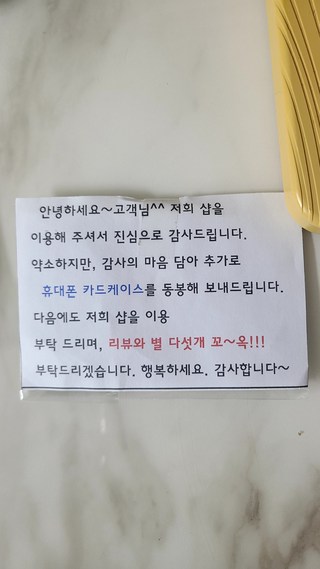 안녕하세요~고객님^^ 저희 샵을
이용해 주셔서 진심으로 감사드립니다.
약소하지만, 감사의 마음 담아 추가로
휴대폰 카드케이스를 동봉해 보내드립니다.
다음에도 저희 샵을 이용
부탁 드리며, 리뷰와 별 다섯개 꼬~옥!!!
부탁드리겠습니다. 행복하세요. 감사합니다~